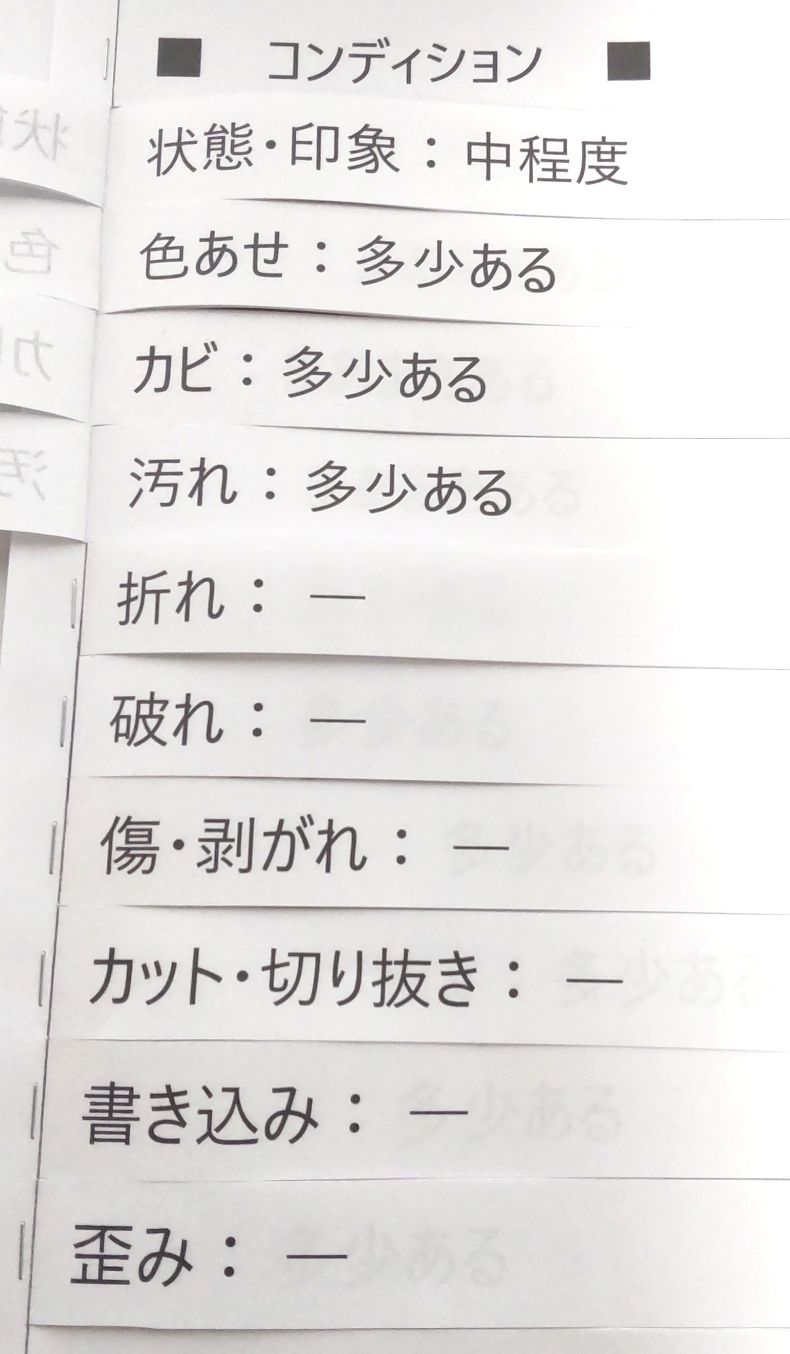 ■ コンディション ■
状態・印象：中程度
色あせ：多少ある
カビ：多少ある
汚れ：多少ある
折れ：―
破れ：―
傷・剥がれ：―
カット・切り抜き：―
書き込み：―
歪み：―